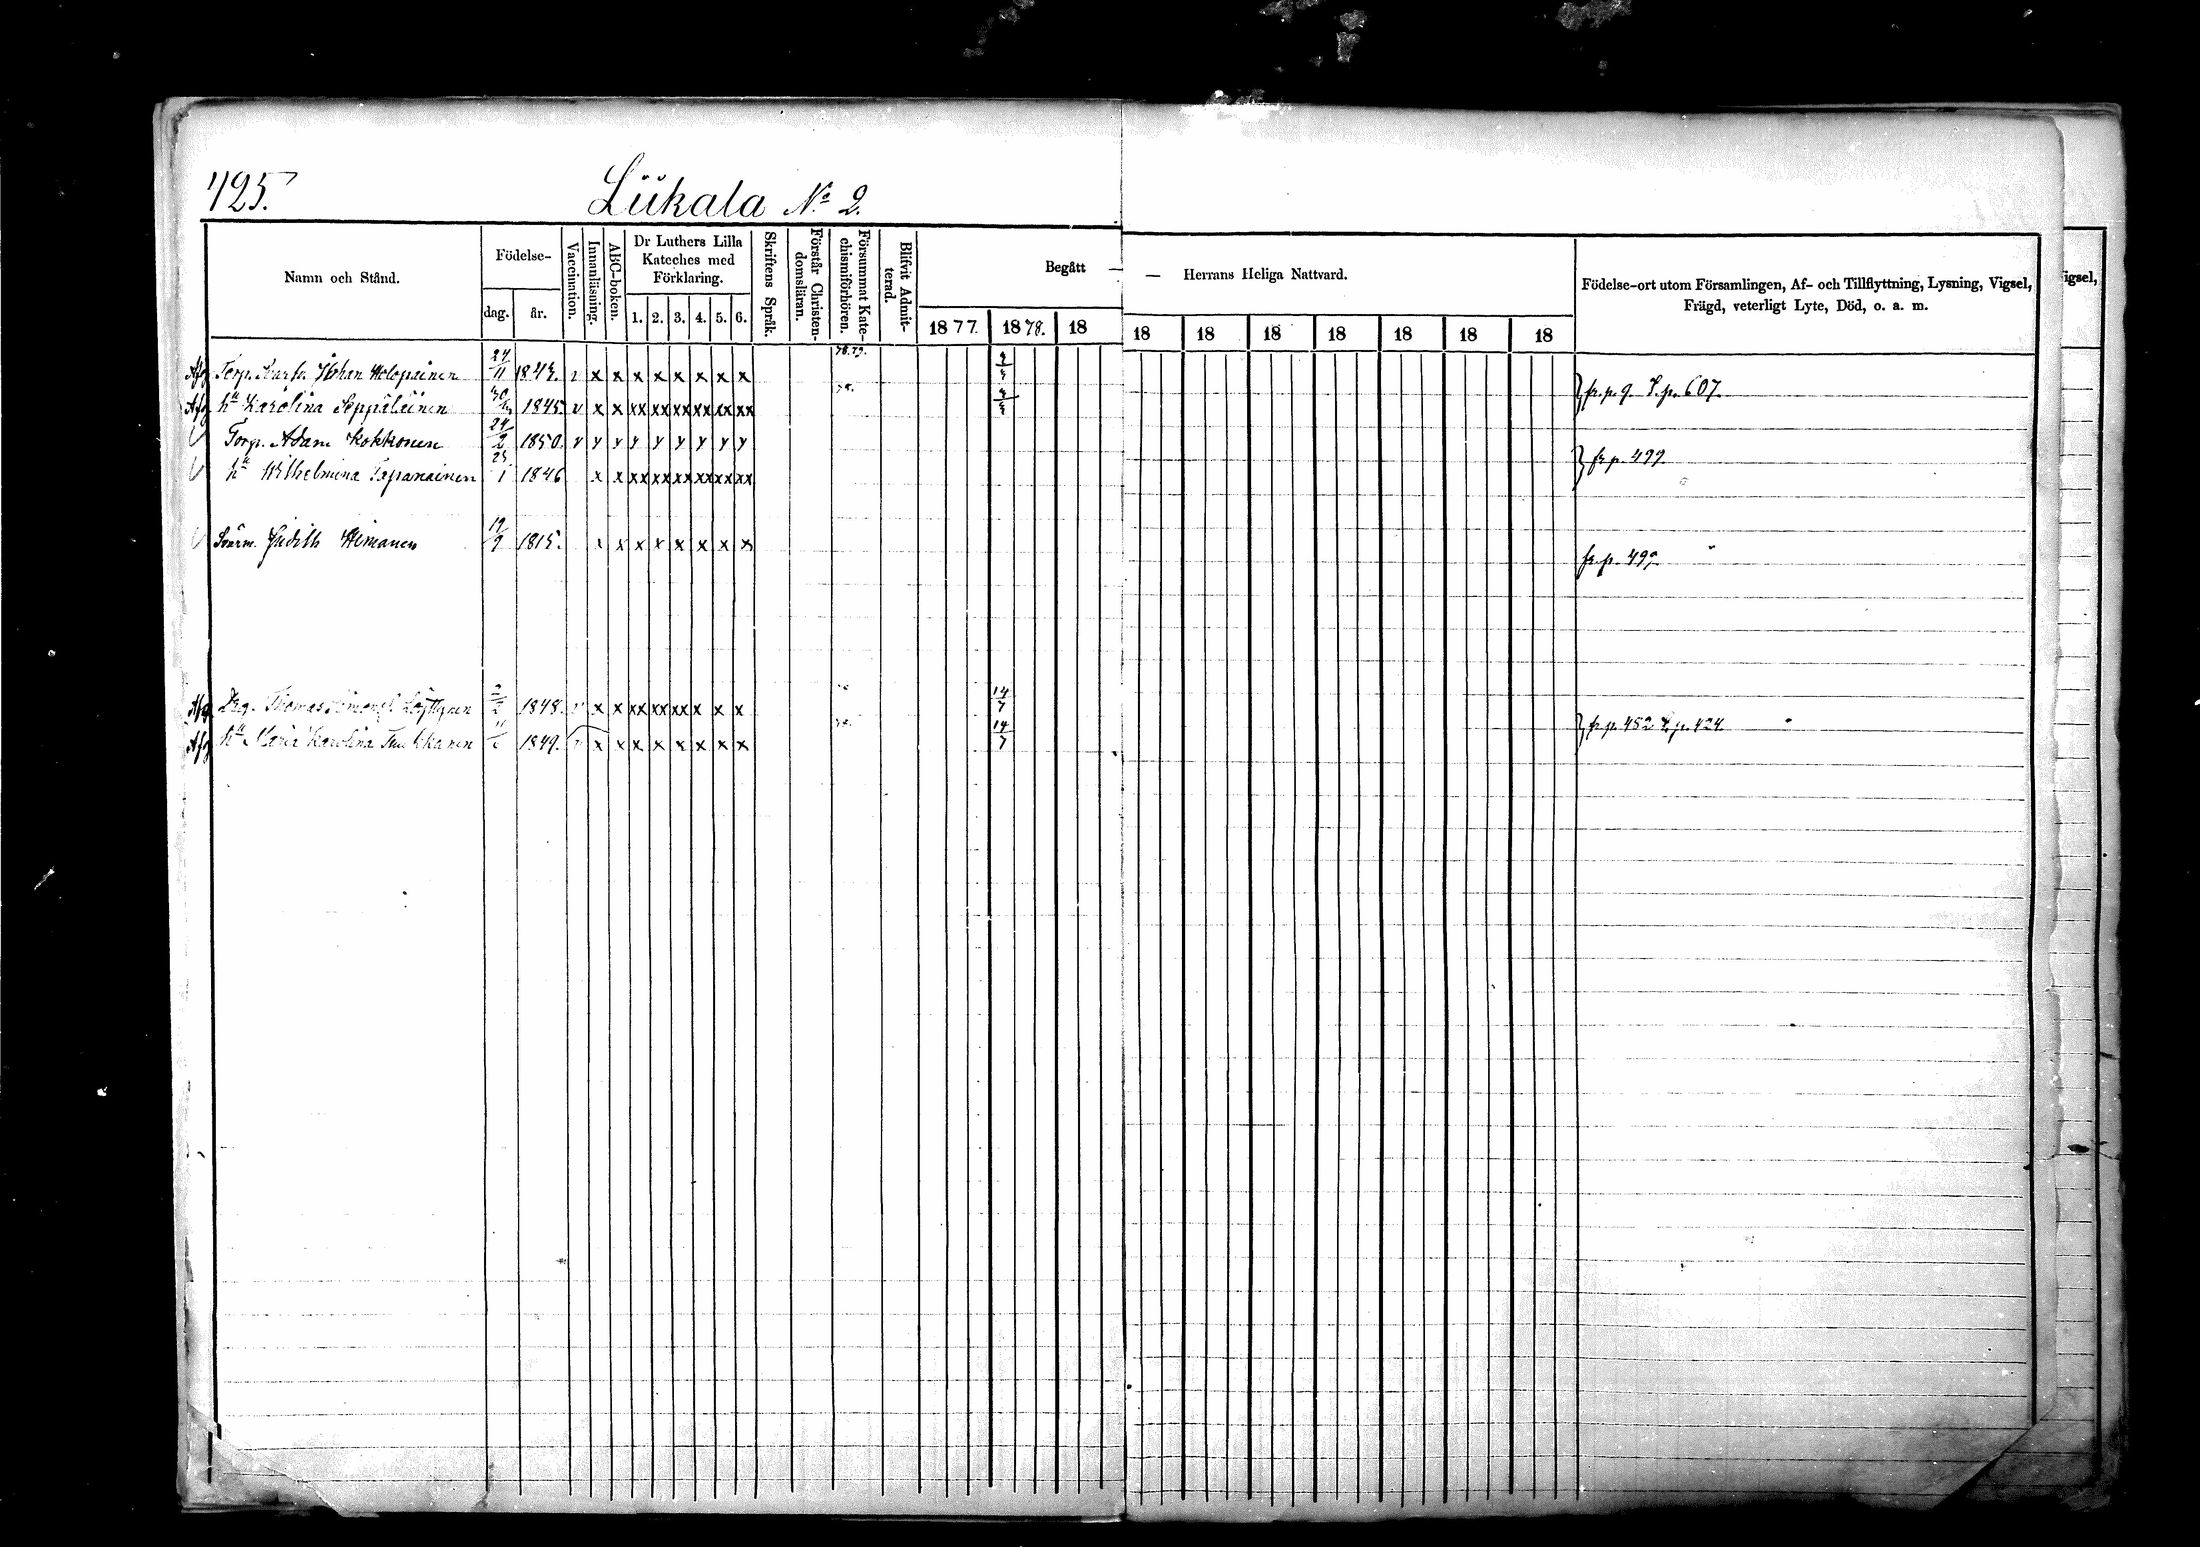 425.
Liikala No 2.
Namn och Stånd.
Födelse-
dag.
år.
Vaccination.
Innanläsning.
ABC-boken.
Dr Luthers Lilla
Kateches med
Förklaring.
1. 2. 3. 4. 5. 6.
Skriftens Språk.
Förstår Christen-
domsläran.
Försummat Kate-
chismiförhören.
Blifvit Admit-
terad.
Begått — — Herrans Heliga Nattvard.
1877. 1878. 18 18 18 18 18 18 18 18
Födelse-ort utom Församlingen, Af- och Tillflyttning, Lysning, Vigsel,
Frägd, veterligt Lyte, Död, o. a. m.
igsel,
Afg Torp. Johan Holopainen 24/11 184 v x x x x x x x x 78.79.
Afg hu Karolina Seppäläinen 30 1845. v x x xx xx xx xx xx xx 78. fr. p. 9. T. p. 607.
Torp. Adam Kokkonen 24/2 1850. v y y y y y y y y
hu Wilhelmina Tapanainen 25/1 1846 x x xx xx xx xx xx xx fr p. 499
Svärm. Judith Himanen 19/9 1815. x x x x x x x x fr. p. 499
Afg Drg. Thomas Simonss. Löyttynen 2/2 1848. v x x xx xx xx x x x 14/7
Afg hu Maria Karolina 1849. v x x x x x x x x 78. 14/7 fr p. 452 T. p. 424.